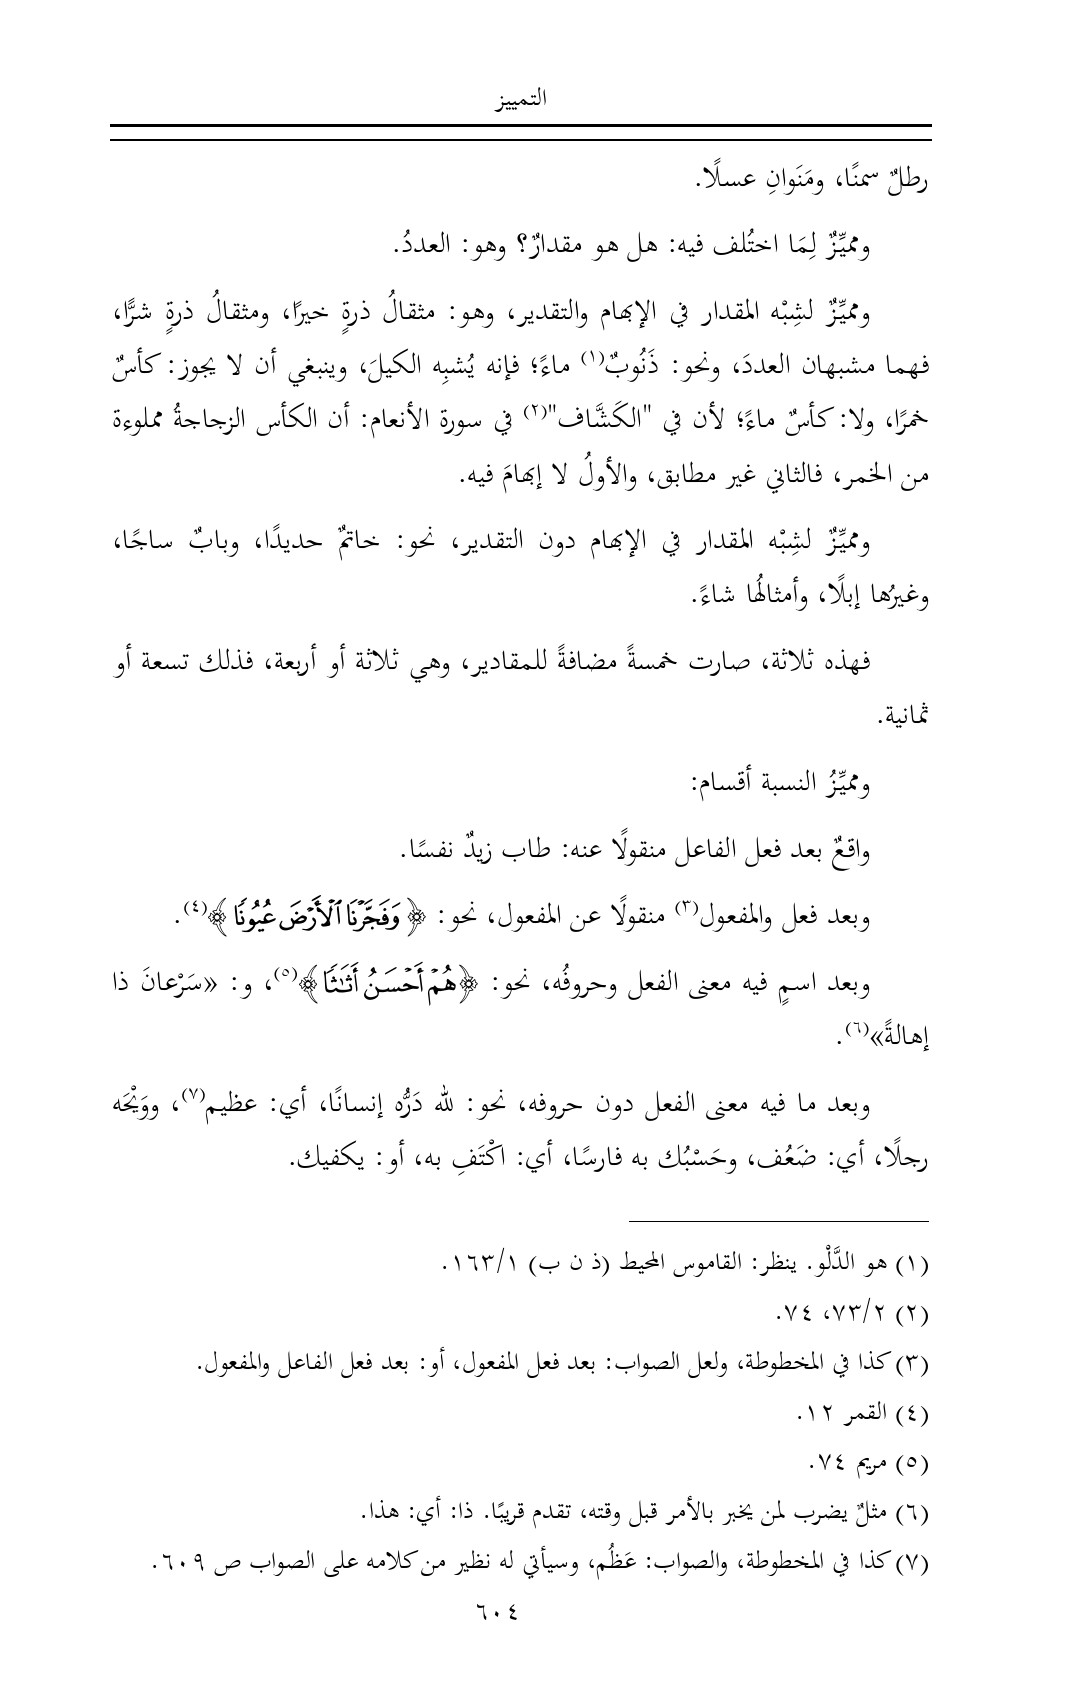 التمييز
رطلٌ سمنًا، ومَنَوانِ عسلًا.
ومميِّزٌ لِمَا اختُلف فيه: هل هو مقدارٌ؟ وهو: العددُ.
ومميِّزٌ لشِبْه المقدار في الإبهام والتقدير، وهو: مثقالُ ذرةٍ خيرًا، ومثقالُ ذرةٍ شرًّا،
فهما مشبهان العددَ، ونحو: ذَنُوبٌ(١) ماءً؛ فإنه يُشبِه الكيلَ، وينبغي أن لا يجوز: كأسٌ
خمرًا، ولا: كأسٌ ماءً؛ لأن في "الكَشَّاف"(٢) في سورة الأنعام: أن الكأس الزجاجةُ مملوءة
من الخمر، فالثاني غير مطابق، والأولُ لا إبهامَ فيه.
ومميِّزٌ لشِبْه المقدار في الإبهام دون التقدير، نحو: خاتمٌ حديدًا، وبابٌ ساجًا،
وغيرُها إبلًا، وأمثالُها شاءً.
فهذه ثلاثة، صارت خمسةً مضافةً للمقادير، وهي ثلاثة أو أربعة، فذلك تسعة أو
ثمانية.
ومميِّزُ النسبة أقسام:
واقعٌ بعد فعل الفاعل منقولًا عنه: طاب زيدٌ نفسًا.
وبعد فعل والمفعول(٣) منقولًا عن المفعول، نحو: ﴿وَفَجَّرْنَا ٱلْأَرْضَ عُيُونًا﴾(٤).
وبعد اسمٍ فيه معنى الفعل وحروفُه، نحو: ﴿هُمْ أَحْسَنُ أَثَٰثًا﴾(٥)، و: «سَرْعانَ ذا
إهالةً»(٦).
وبعد ما فيه معنى الفعل دون حروفه، نحو: لله دَرُّه إنسانًا، أي: عظيم(٧)، ووَيْحَه
رجلًا، أي: ضَعُف، وحَسْبُك به فارسًا، أي: اكْتَفِ به، أو: يكفيك.
(١) هو الدَّلْو. ينظر: القاموس المحيط (ذ ن ب) ١/١٦٣.
(٢) ٢/٧٣، ٧٤.
(٣) كذا في المخطوطة، ولعل الصواب: بعد فعل المفعول، أو: بعد فعل الفاعل والمفعول.
(٤) القمر ١٢.
(٥) مريم ٧٤.
(٦) مثلٌ يضرب لمن يخبر بالأمر قبل وقته، تقدم قريبًا. ذا: أي: هذا.
(٧) كذا في المخطوطة، والصواب: عَظُم، وسيأتي له نظير من كلامه على الصواب ص ٦٠٩.
٦٠٤